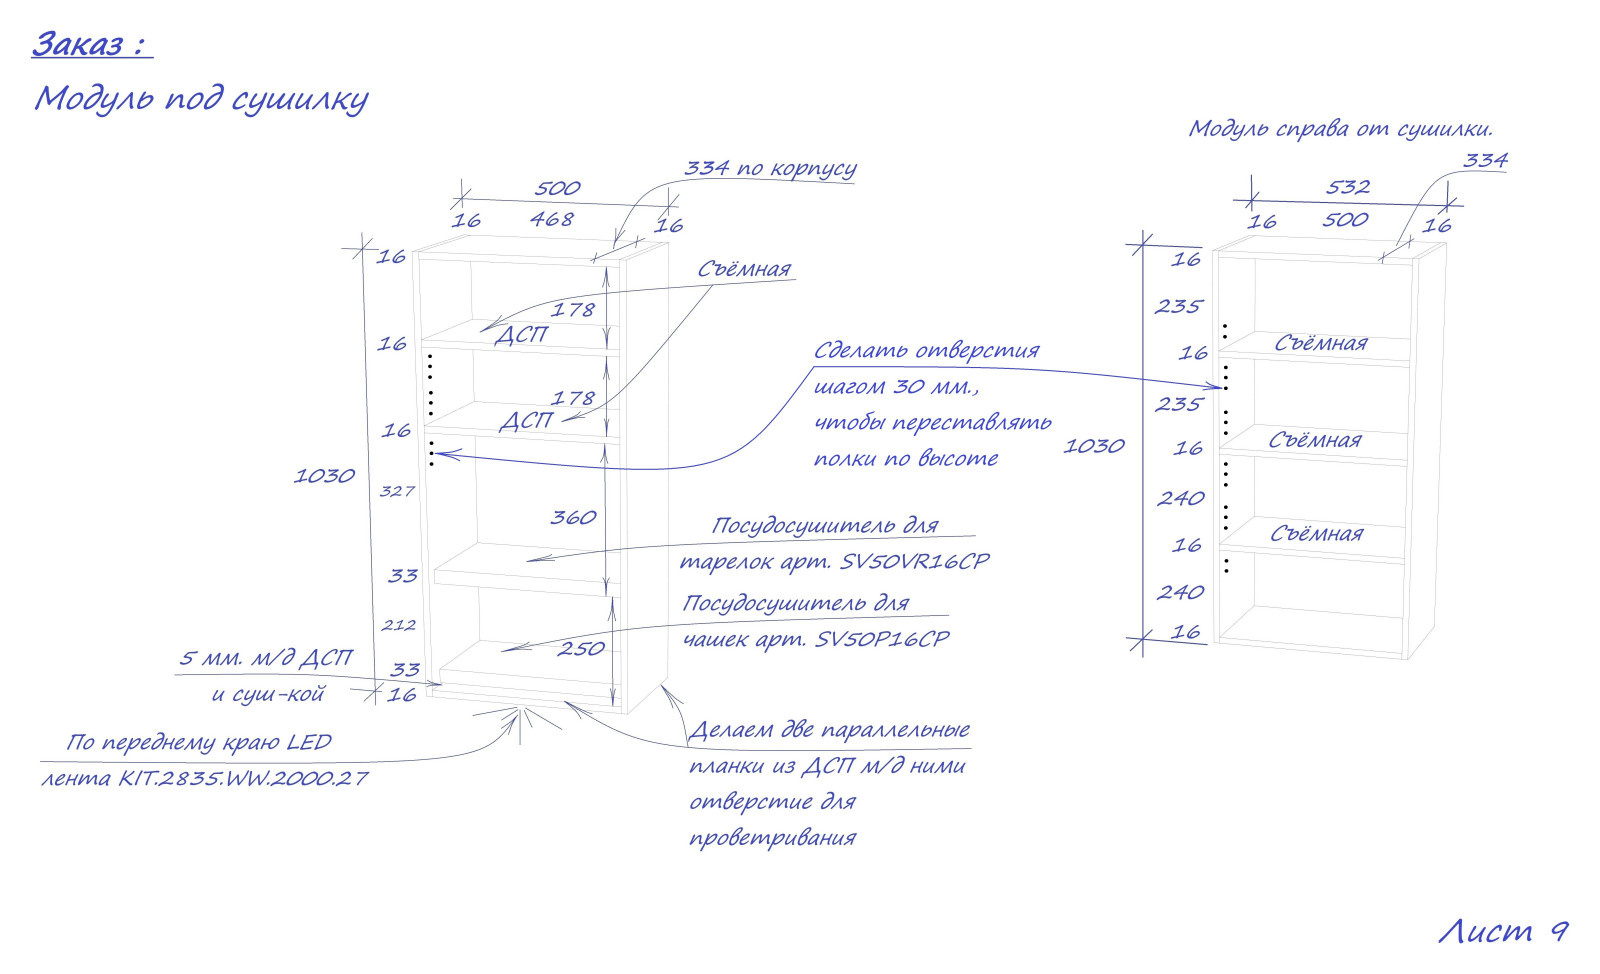 Заказ :
Модуль под сушилку
Модуль справа от сушилки.
334 по корпусу
334
500
532
16 468 16
16 500 16
16
16
Съёмная
178
235
ДСП
16
Съёмная
16
Сделать отверстия
шагом 30 мм.,
чтобы переставлять
полки по высоте
178
235
ДСП
16
Съёмная
16
1030
1030
327
240
360
Посудосушитель для
тарелок арт. SV50VR16CP
Съёмная
16
33
240
Посудосушитель для
чашек арт. SV50P16CP
212
16
250
5 мм. м/д ДСП
и суш-кой
33
16
По переднему краю LED
лента KIT.2835.WW.2000.27
Делаем две параллельные
планки из ДСП м/д ними
отверстие для
проветривания
Лист 9